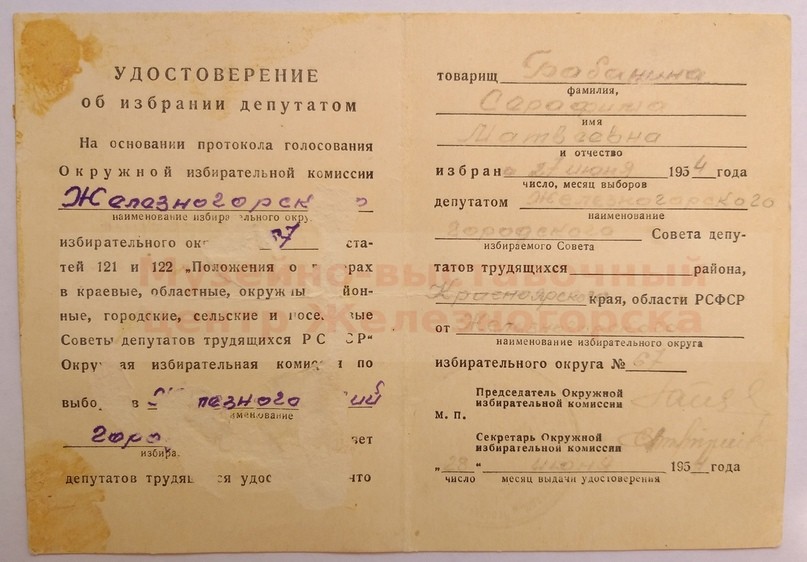 УДОСТОВЕРЕНИЕ
об избрании депутатом
На основании протокола голосования
Окружной избирательной комиссии
Железногорск о
наименование избира тельного окру
избирательного ок 67 ста-
тей 121 и 122 „Положения о рах
в краевые, областные, окружны йон-
ные, городские, сельские и посел вые
Советы депутатов трудящихся РС СР"
Окру ая избирательная комис по
выбо в Ж лезного ий
именование
горо вет
избира
депутатов трудящ ся удос что
товарищ Грабанина
фамилия,
Серафима
имя
Матвеевна
и отчество
избрана 27 июня 1954 года
число, месяц выборов
депутатом Железногорского
наименование
городского Совета депу-
избираемого Совета
татов трудящихся района,
Красноярского края, области РСФСР
от
наименование избирательного округа
избирательного округа № 67
Председатель Окружной
избирательной комиссии
М. П.
Секретарь Окружной
избирательной комиссии
„28" июня 1954 года
число месяц выдачи удостоверения
Музейно-выставочный
центр Железногорска